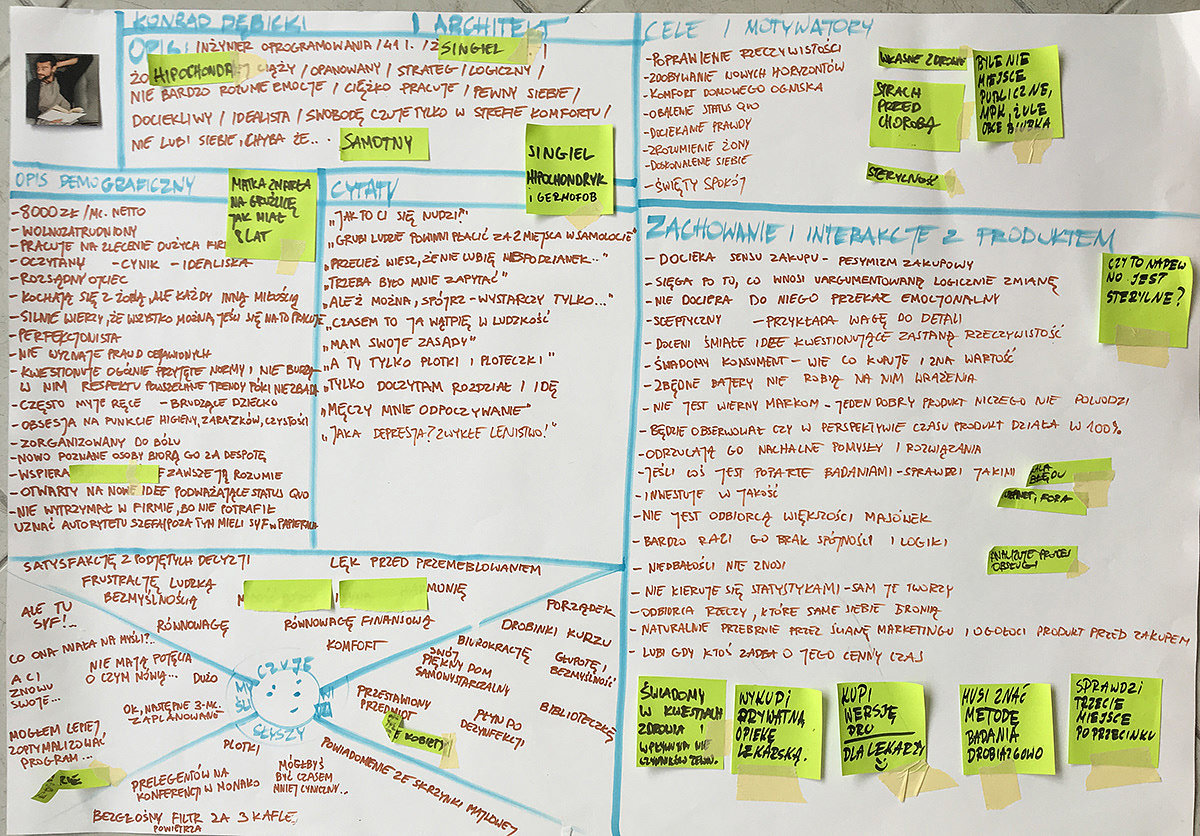 KONRAD DĘBICKI
ARCHITEKT
OPIS: INŻYNIER OPROGRAMOWANIA / 41 l. /
SINGIEL
HIPOCHONDRYK
CIĄŻY / OPANOWANY / STRATEG / LOGICZNY /
NIE BARDZO ROZUMIE EMOCJE / CIĘŻKO PRACUJE / PEWNY SIEBIE /
DOCIEKLIWY / IDEALISTA / SWOBODĘ CZUJE TYLKO W STREFIE KOMFORTU /
NIE LUBI SIEBIE, CHYBA ŻE...
SAMOTNY
SINGIEL
HIPOCHONDRYK
I GERMOFOB
OPIS DEMOGRAFICZNY
- 8000 ZŁ / MC. NETTO
- WOLNOZATRUDNIONY
- PRACUJE NA ZLECENIE DUŻYCH FIRM
- OCZYTANY - CYNIK - IDEALISTA
- ROZSĄDNY OJCIEC
- KOCHAJĄ SIĘ Z ŻONĄ, ALE KAŻDY INNĄ MIŁOŚCIĄ
- SILNIE WIERZY, ŻE WSZYSTKO MOŻNA, JEŚLI SIĘ NA TO PRACUJE
- PERFEKCJONISTA
- NIE WYZNAJE PRAWD OBJAWIONYCH
- KWESTIONUJE OGÓLNIE PRZYJĘTE NORMY I NIE BUDZĄ
W NIM RESPEKTU POWSZECHNE TRENDY PÓKI NIE ZBADA
- CZĘSTO MYJE RĘCE - BRUDZĄCE DZIECKO
- OBSESJA NA PUNKCIE HIGIENY, ZARAZKÓW, CZYSTOŚCI
- ZORGANIZOWANY DO BÓLU
- NOWO POZNANE OSOBY BIORĄ GO ZA DESPOTĘ
- WSPIERA ROZUMIE
- OTWARTY NA NOWE IDEE PODWAŻAJĄCE STATUS QUO
- NIE WYTRZYMAŁ W FIRMIE, BO NIE POTRAFIŁ
UZNAĆ AUTORYTETU SZEFA (POZA TYM MIELI SYF W PAPIERACH
MATKA ZMARŁA
NA GRUŹLICĘ
JAK MIAŁ
8 LAT
CYTATY
„JAK TO CI SIĘ NUDZI?"
„GRUBI LUDZIE POWINNI PŁACIĆ ZA 2 MIEJSCA W SAMOLOCIE"
„PRZECIEŻ WIESZ, ŻE NIE LUBIĘ NIESPODZIANEK..."
„TRZEBA BYŁO MNIE ZAPYTAĆ"
„ALEŻ MOŻNA, SPÓJRZ - WYSTARCZY TYLKO..."
„CZASEM TO JA WĄTPIĘ W LUDZKOŚĆ
„MAM SWOJE ZASADY"
„A TY TYLKO PLOTKI I PLOTECZKI"
„TYLKO DOCZYTAM ROZDZIAŁ I IDĘ
„MĘCZY MNIE ODPOCZYWANIE"
„JAKA DEPRESJA? ZWYKŁE LENISTWO!"
CELE I MOTYWATORY
- POPRAWIENIE RZECZYWISTOŚCI
- ZDOBYWANIE NOWYCH HORYZONTÓW
- KOMFORT DOMOWEGO OGNISKA
- OBALENIE STATUS QUO
- DOCIEKANIE PRAWDY
- ZROZUMIENIE ŻONY
- DOSKONALENIE SIEBIE
- ŚWIĘTY SPOKÓJ
WŁASNE ZDROWIE
STRACH
PRZED
CHOROBĄ
STERYLNOŚĆ
BYLE NIE
MIEJSCE
PUBLICZNE,
MPK, ŻULE
OBCE BIURKA
ZACHOWANIE I INTERAKCJE Z PRODUKTEM
- DOCIEKA SENSU ZAKUPU - PESYMIZM ZAKUPOWY
- SIĘGA PO TO, CO WNOSI UARGUMENTOWANĄ LOGICZNIE ZMIANĘ
- NIE DOCIERA DO NIEGO PRZEKAZ EMOCJONALNY
- SCEPTYCZNY - PRZYKŁADA WAGĘ DO DETALI
- DOCENI ŚMIAŁE IDEE KWESTIONUJĄCE ZASTANĄ RZECZYWISTOŚĆ
- ŚWIADOMY KONSUMENT - WIE CO KUPUJE I ZNA WARTOŚĆ
- ZBĘDNE BAJERY NIE ROBIĄ NA NIM WRAŻENIA
- NIE JEST WIERNY MARKOM - JEDEN DOBRY PRODUKT NICZEGO NIE DOWODZI
- BĘDZIE OBSERWOWAŁ CZY W PERSPEKTYWIE CZASU PRODUKT DZIAŁA W 100%
- ODRZUCAJĄ GO NACHALNE POMYSŁY I ROZWIĄZANIA
- JEŚLI COŚ JEST POPARTE BADANIAMI - SPRAWDZI JAKIMI
- INWESTUJE W JAKOŚĆ
- NIE JEST ODBIORCĄ WIĘKSZOŚCI MAJÓWEK
- BARDZO RAZI GO BRAK SPÓJNOŚCI I LOGIKI
- NIEDBAŁOŚCI NIE ZNOSI
- NIE KIERUJE SIĘ STATYSTYKAMI - SAM JE TWORZY
- ODBIORCA RZECZY, KTÓRE SAME SIEBIE BRONIĄ
- NATURALNIE PRZEBRNIE PRZEZ ŚCIANĘ MARKETINGU I OGOŁOCI PRODUKT PRZED ZAKUPEM
- LUBI GDY KTOŚ ZADBA O JEGO CENNY CZAS
CZY TO NAPEW
NO JEST
STERYLNE?
BŁĘDU
INTERNET, FORA
ANALIZUJE PROCES
OBSŁUGI
ŚWIADOMY
W KWESTIACH
ZDROWIA I
WPŁYWU NIE
CZYNNIKÓW ZEWN.
WYKUPI
PRYWATNĄ
OPIEKĘ
LEKARSKĄ.
KUPI
WERSJĘ
PRO
DLA LEKARZY
MUSI ZNAĆ
METODĘ
BADANIA
DROBIAZGOWO
SPRAWDZI
TRZECIE
MIEJSCE
PO PRZECINKU
SATYSFAKCJĘ Z PODJĘTYCH DECYZJI
LĘK PRZED PRZEMEBLOWANIEM
FRUSTRACJĘ LUDZKĄ
BEZMYŚLNOŚCIĄ
MONIĘ
RÓWNOWAGĘ
RÓWNOWAGĘ FINANSOWĄ
KOMFORT
ALE TU
SYF!..
CO ONA MIAŁA NA MYŚLI?..
A CI
ZNOWU
SWOJE...
NIE MAJĄ POJĘCIA
O CZYM MÓWIĄ... DUŻO
OK, NASTĘPNE 3-MC.
ZAPLANOWANE
MOGŁEM LEPIEJ
ZOPTYMALIZOWAĆ
PROGRAM...
CZUJE
SŁYSZY
PORZĄDEK
DROBINKI KURZU
BIUROKRACJĘ
GŁUPOTĘ I
BEZMYŚLNOŚĆ
SWÓJ
PIĘKNY DOM
SAMOWYSTARCZALNY
BIBLIOTECZKĘ
PRZESTAWIONY
PRZEDMIOT
KOBIETY
PŁYN DO
DEZYNFEKCJI
PLOTKI
PRELEGENTÓW NA
KONFERENCJI W MONAKO
MÓGŁBYŚ
BYĆ CZASEM
MNIEJ CYNICZNY...
POWIADOMIENIE ZE SKRZYNKI MAILOWEJ
BEZGŁOŚNY FILTR ZA 3 KAFLE,
POWIETRZA